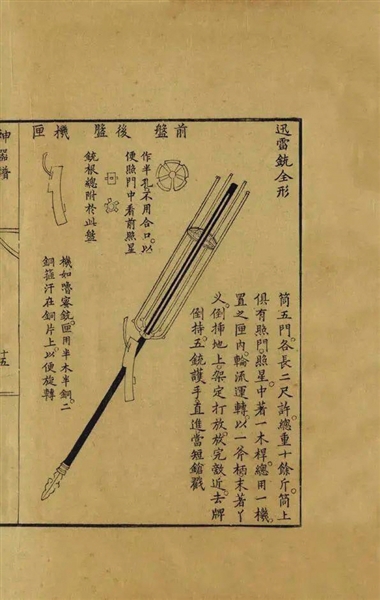 迅雷銃全形
前盤
後盤
機匣
作半孔不用合口以
便照門中看前照星
銃根總附於此盤
筒五門各長二尺許總重十餘斤筒上
俱有照門照星中著一木桿總用一機
置之匣內輪流運轉以一斧柄末著丫
义倒插地上架定打放放完敵近去牌
倒持五銃護手直進當短鎗戳
機如嚕蜜銃匣用半木半銅二
銅箍汗在銅片上以便旋轉
神器譜
十五